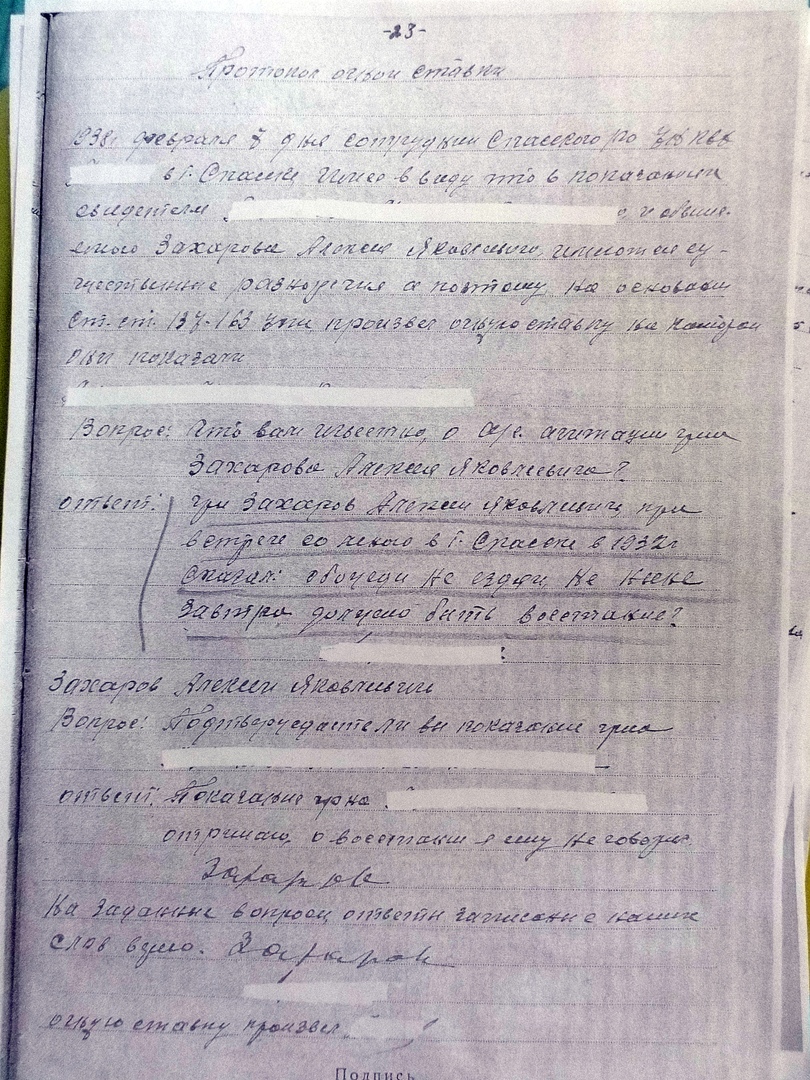 -23-
Протокол очной ставки
1938г февраля 8 дня сотрудник Спасского ро УНКВД
в г. Спасске Имея в виду что в показаниях
свидетеля и обвиня-
емого Захарова Алексея Яковлевича, имеются су-
щественные разноречия а поэтому на основании
ст.ст. 137-163 упк произвел очную ставку на которой
они показали
Вопрос: Что вам известно, о а/с. агитации гр-на
Захарова Алексея Яковлевича?
ответ: гр-н Захаров Алексей Яковлевич при
встрече со мною в г. Спасске в 1932г
Сказал: не езди не ныне
Завтра должно быть восстание?
Захаров Алексей Яковлевич
Вопрос: Подтверждаете ли вы показание гр-на
ответ: Показание гр-на
отрицаю, о восстании я ему не говорил
Захаров
На Заданные вопросы ответы записаны с наших
слов верно. Захаров
очную ставку произвел
Подпись